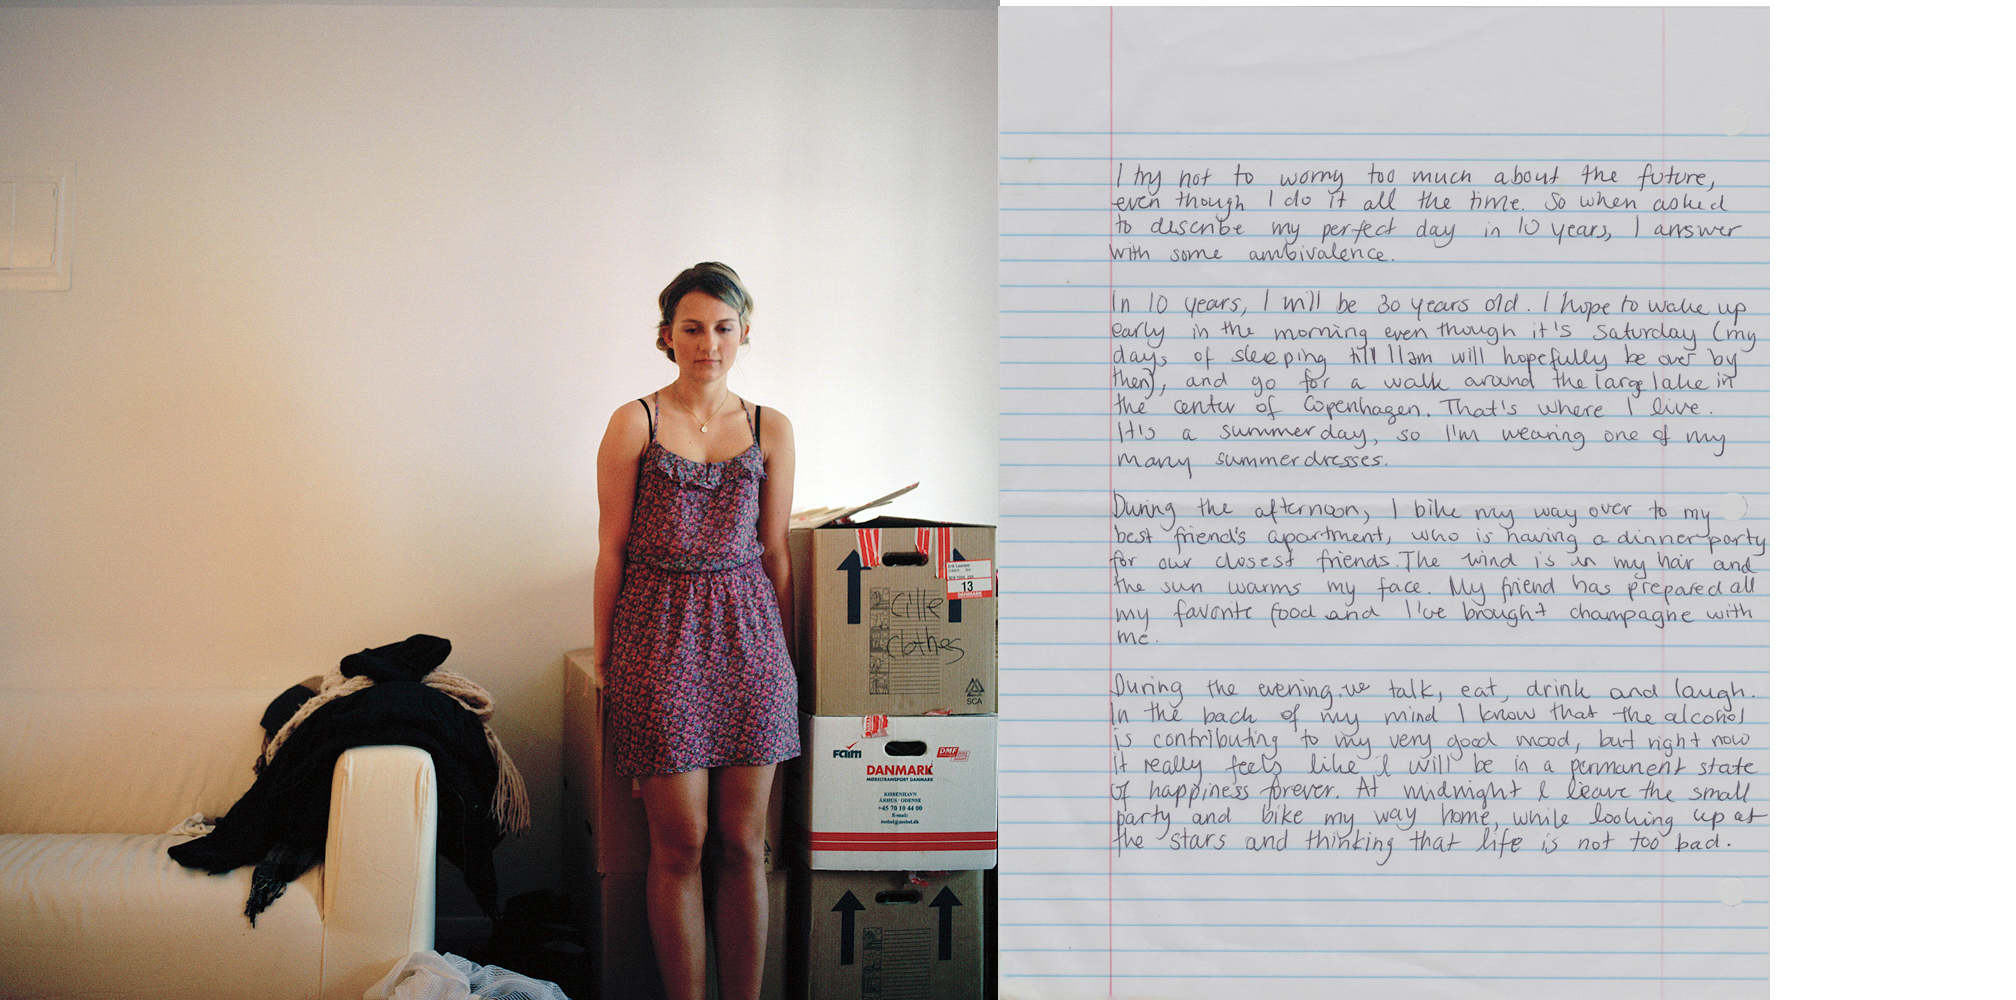 Erik Laursen
13
DANMARK
Cille
Clothes
SCA
Faim
DMF
DANMARK
MØBELTRANSPORT DANMARK
KØBENHAVN
ÅRHUS · ODENSE
+45 70 10 44 00
E-mail:
mobel@mobel.dk
I try not to worry too much about the future,
even though I do it all the time. So when asked
to describe my perfect day in 10 years, I answer
with some ambivalence.
In 10 years, I will be 30 years old. I hope to wake up
early in the morning even though it's Saturday (my
days of sleeping till 11am will hopefully be over by
then), and go for a walk around the large lake in
the center of Copenhagen. That's where I live.
It's a summer day, so I'm wearing one of my
many summer dresses.
During the afternoon, I bike my way over to my
best friend's apartment, who is having a dinner party
for our closest friends. The wind is in my hair and
the sun warms my face. My friend has prepared all
my favorite food and I've brought champagne with
me.
During the evening, we talk, eat, drink and laugh.
In the back of my mind I know that the alcohol
is contributing to my very good mood, but right now
it really feels like I will be in a permanent state
of happiness forever. At midnight I leave the small
party and bike my way home, while looking up at
the stars and thinking that life is not too bad.